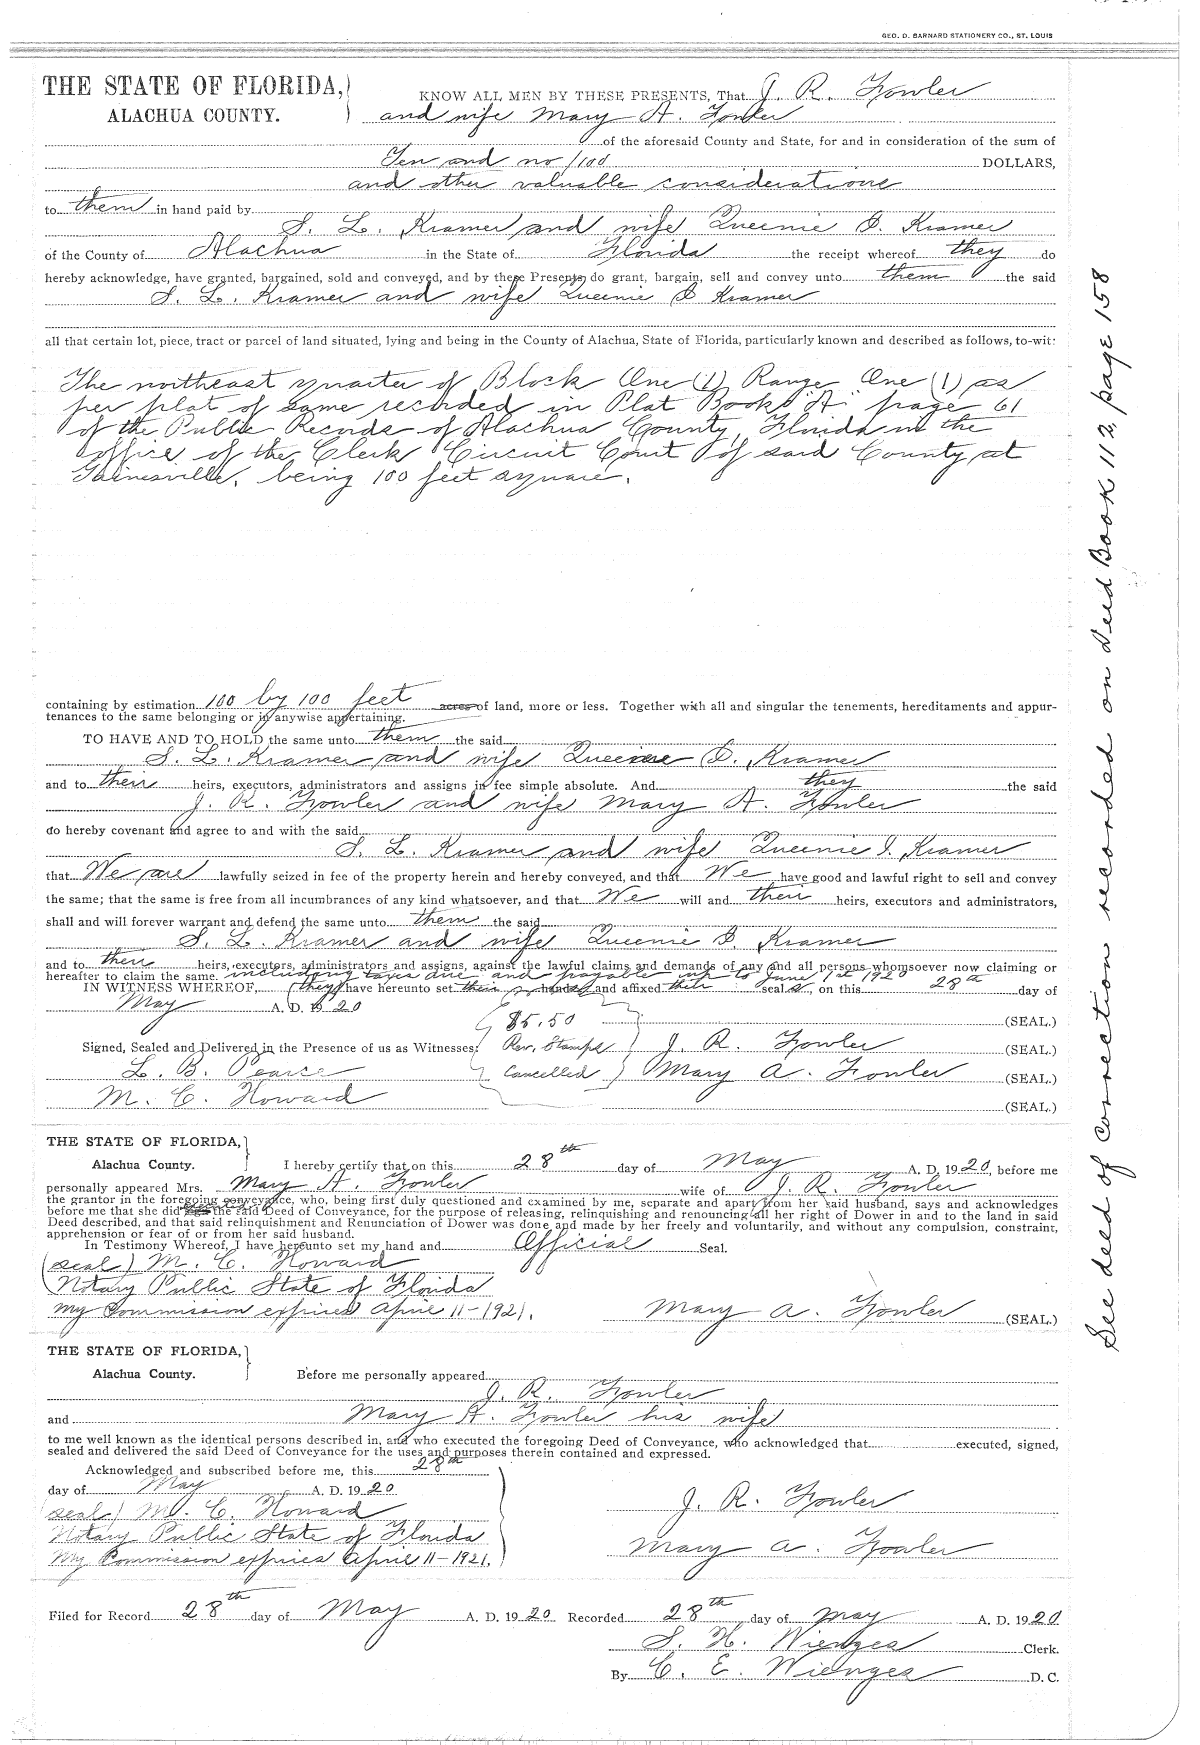 GEO. D. BARNARD STATIONERY CO., ST. LOUIS
THE STATE OF FLORIDA,
ALACHUA COUNTY.
KNOW ALL MEN BY THESE PRESENTS, That J. R. Fowler
and wife Mary A. Fowler
of the aforesaid County and State, for and in consideration of the sum of
Ten and no/100 DOLLARS,
and other valuable considerations
to them in hand paid by
S. L. Kramer and wife Queenie I. Kramer
of the County of Alachua in the State of Florida the receipt whereof they do
hereby acknowledge, have granted, bargained, sold and conveyed, and by these Presents do grant, bargain, sell and convey unto them the said
S. L. Kramer and wife Queenie I Kramer
all that certain lot, piece, tract or parcel of land situated, lying and being in the County of Alachua, State of Florida, particularly known and described as follows, to-wit:
The northeast quarter of Block One (1) Range One (1) as
per plat of same recorded in Plat Book "A" page 61
of the Public Records of Alachua County, Florida in the
office of the Clerk Circuit Court of said County at
Gainesville, being 100 feet square.
containing by estimation 100 by 100 feet acres of land, more or less. Together with all and singular the tenements, hereditaments and appur-
tenances to the same belonging or in anywise appertaining.
TO HAVE AND TO HOLD the same unto them the said
S. L. Kramer and wife Queenie I. Kramer
and to their heirs, executors, administrators and assigns in fee simple absolute. And they the said
J. R. Fowler and wife Mary A. Fowler
do hereby covenant and agree to and with the said
S. L. Kramer and wife Queenie I. Kramer
that We are lawfully seized in fee of the property herein and hereby conveyed, and that We have good and lawful right to sell and convey
the same; that the same is free from all incumbrances of any kind whatsoever, and that We will and their heirs, executors and administrators,
shall and will forever warrant and defend the same unto them the said
S. L. Kramer and wife Queenie I. Kramer
and to their heirs, executors, administrators and assigns, against the lawful claims and demands of any and all persons whomsoever now claiming or
hereafter to claim the same. including taxes due and payable up to June 1st 1920
IN WITNESS WHEREOF, they have hereunto set their hands and affixed their seal s, on this 28th day of
May A. D. 19 20
$5.50 (SEAL.)
Signed, Sealed and Delivered in the Presence of us as Witnesses: Rev. Stamps J. R. Fowler (SEAL.)
L. B. Pearce Cancelled Mary A. Fowler (SEAL.)
M. C. Howard (SEAL.)
THE STATE OF FLORIDA,
Alachua County. I hereby certify that on this 28th day of May A. D. 19 20, before me
personally appeared Mrs. Mary A. Fowler wife of J. R. Fowler
the grantor in the foregoing conveyance, who, being first duly questioned and examined by me, separate and apart from her said husband, says and acknowledges
before me that she did execute the said Deed of Conveyance, for the purpose of releasing, relinquishing and renouncing all her right of Dower in and to the land in said
Deed described, and that said relinquishment and Renunciation of Dower was done and made by her freely and voluntarily, and without any compulsion, constraint,
apprehension or fear of or from her said husband.
In Testimony Whereof, I have hereunto set my hand and Official Seal.
(seal) M. C. Howard
Notary Public State of Florida
My Commission expires April 11-1921. Mary A. Fowler (SEAL.)
THE STATE OF FLORIDA,
Alachua County. Before me personally appeared
J. R. Fowler
and Mary A. Fowler his wife
to me well known as the identical persons described in, and who executed the foregoing Deed of Conveyance, who acknowledged that executed, signed,
sealed and delivered the said Deed of Conveyance for the uses and purposes therein contained and expressed.
Acknowledged and subscribed before me, this 28th
day of May A. D. 19 20
(seal) M. C. Howard J. R. Fowler
Notary Public State of Florida
My Commission expires April 11-1921. Mary A. Fowler
Filed for Record 28th day of May A. D. 19 20 Recorded 28th day of May A. D. 19 20
S. H. Wienges Clerk.
By C. E. Wienges D. C.
See deed of correction recorded on Deed Book 112, page 158